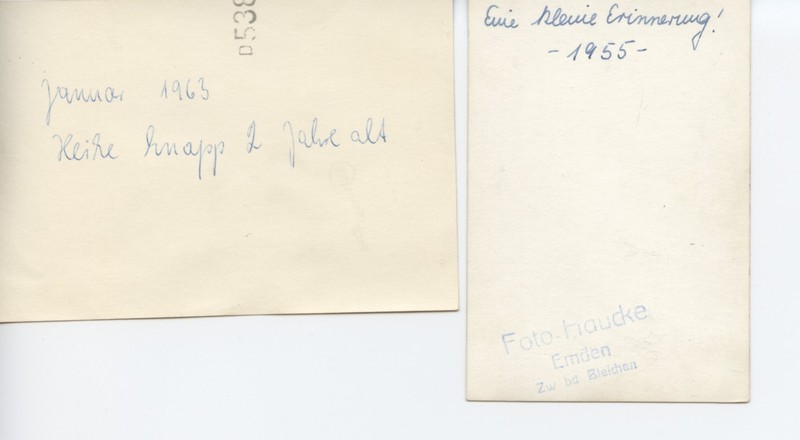 Januar 1963
Heike Knapp 2 Jahre alt
D538
Eine kleine Erinnerung!
- 1955 -
Foto-Haucke
Emden
Zw bd Bleichen